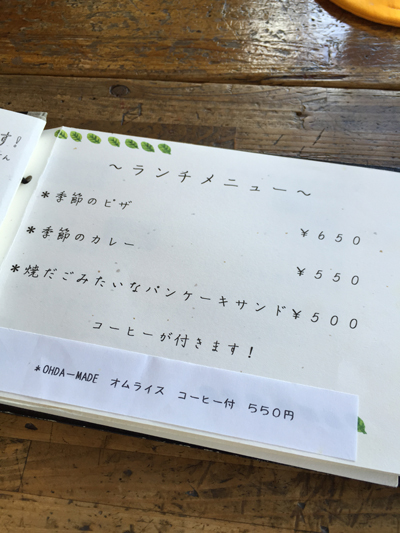 す!
さん
～ランチメニュー～
＊季節のピザ ￥650
＊季節のカレー ￥550
＊焼だごみたいなパンケーキサンド￥500
コーヒーが付きます!
＊OHDA－MADE オムライス コーヒー付 550円